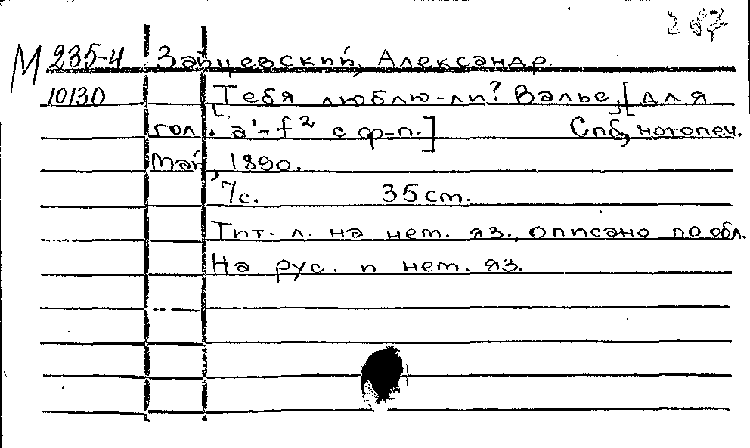 267
М 235-4 Зайцевский, Александр.
10130 Тебя люблю-ли? Вальс, [для
гол. a'-f² с ф-п.] Спб, нотопеч.
Май, 1890.
7с. 35 cm.
Тит. л. на нем. яз., описано по обл.
На рус. и нем. яз.